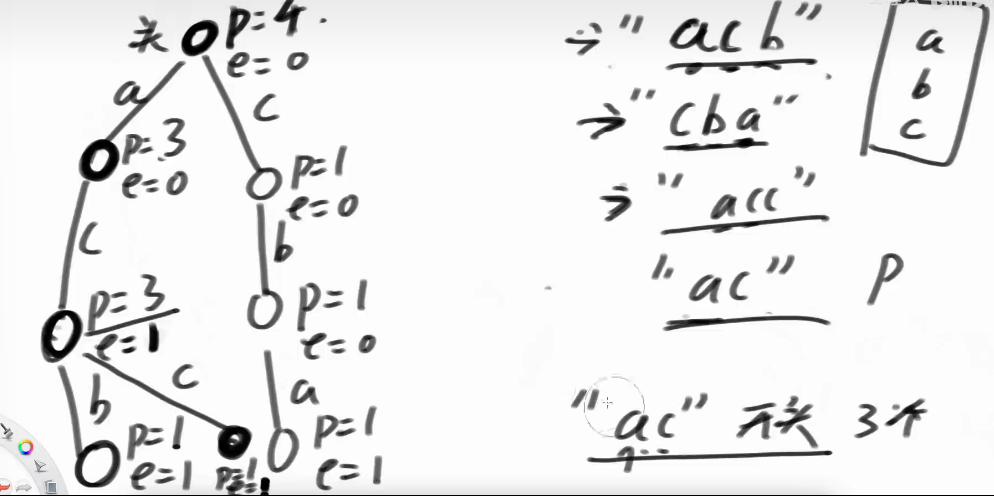 头 p=4
e=0
a
c
p=3
e=0
p=1
e=0
c
b
p=3
e=1
p=1
e=0
b
c
a
p=1
e=1
p=1
e=1
p=1
e=1
→"acb"
→"cba"
→"acc"
"ac" P
"ac"开头 3个
a
b
c